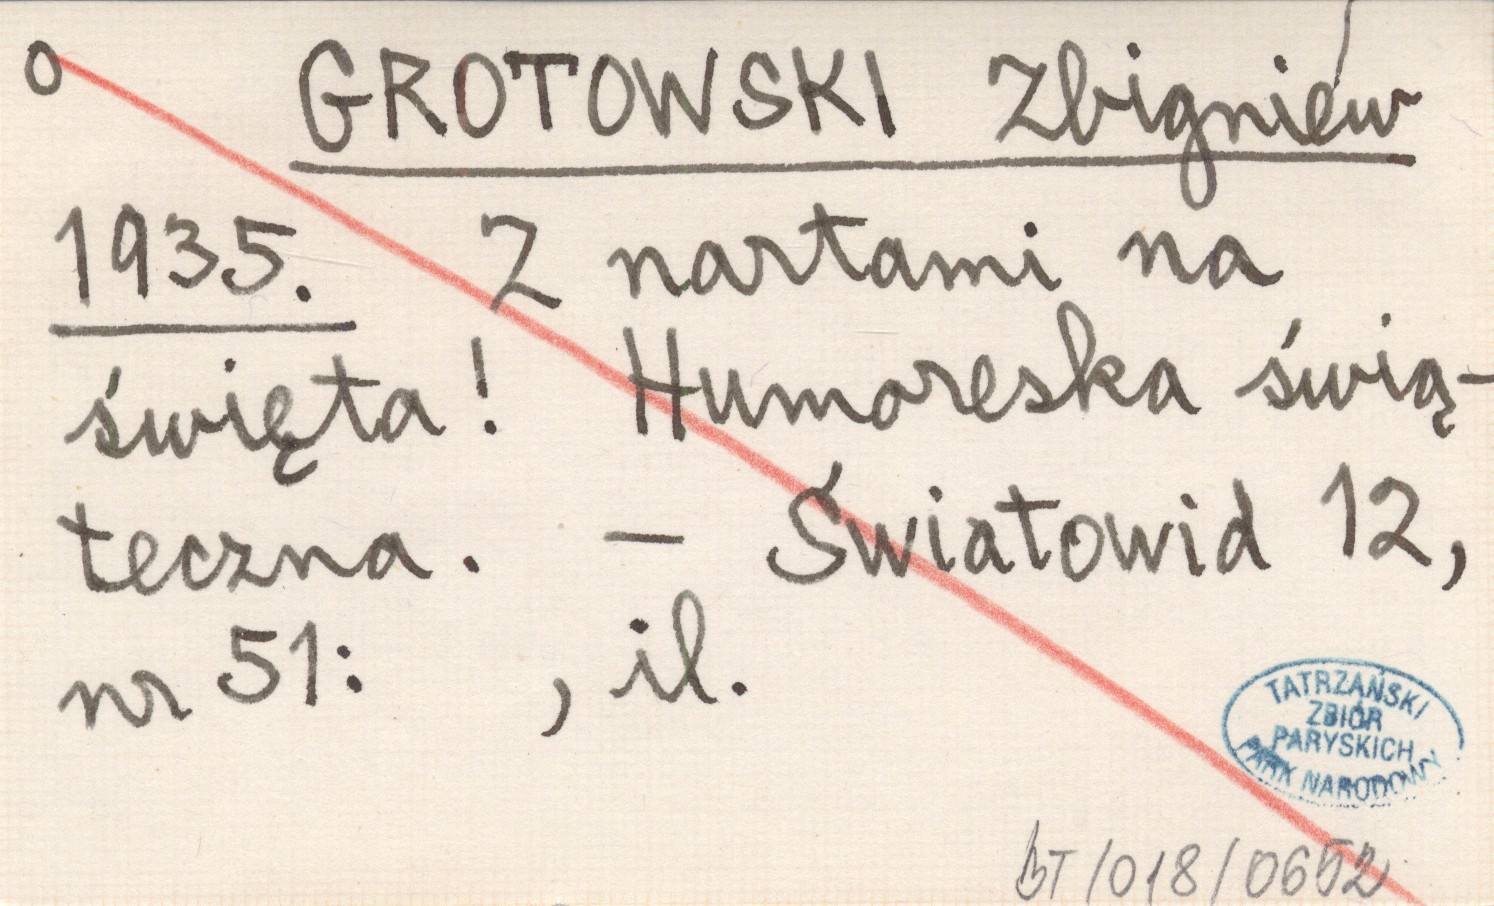 O GROTOWSKI Zbigniew
1935. Z nartami na
święta! Humoreska świą-
teczna. — Światowid 12,
nr 51: , il.
TATRZAŃSKI
ZBIÓR
PARYSKICH
PARK NARODOWY
BT/018/0652